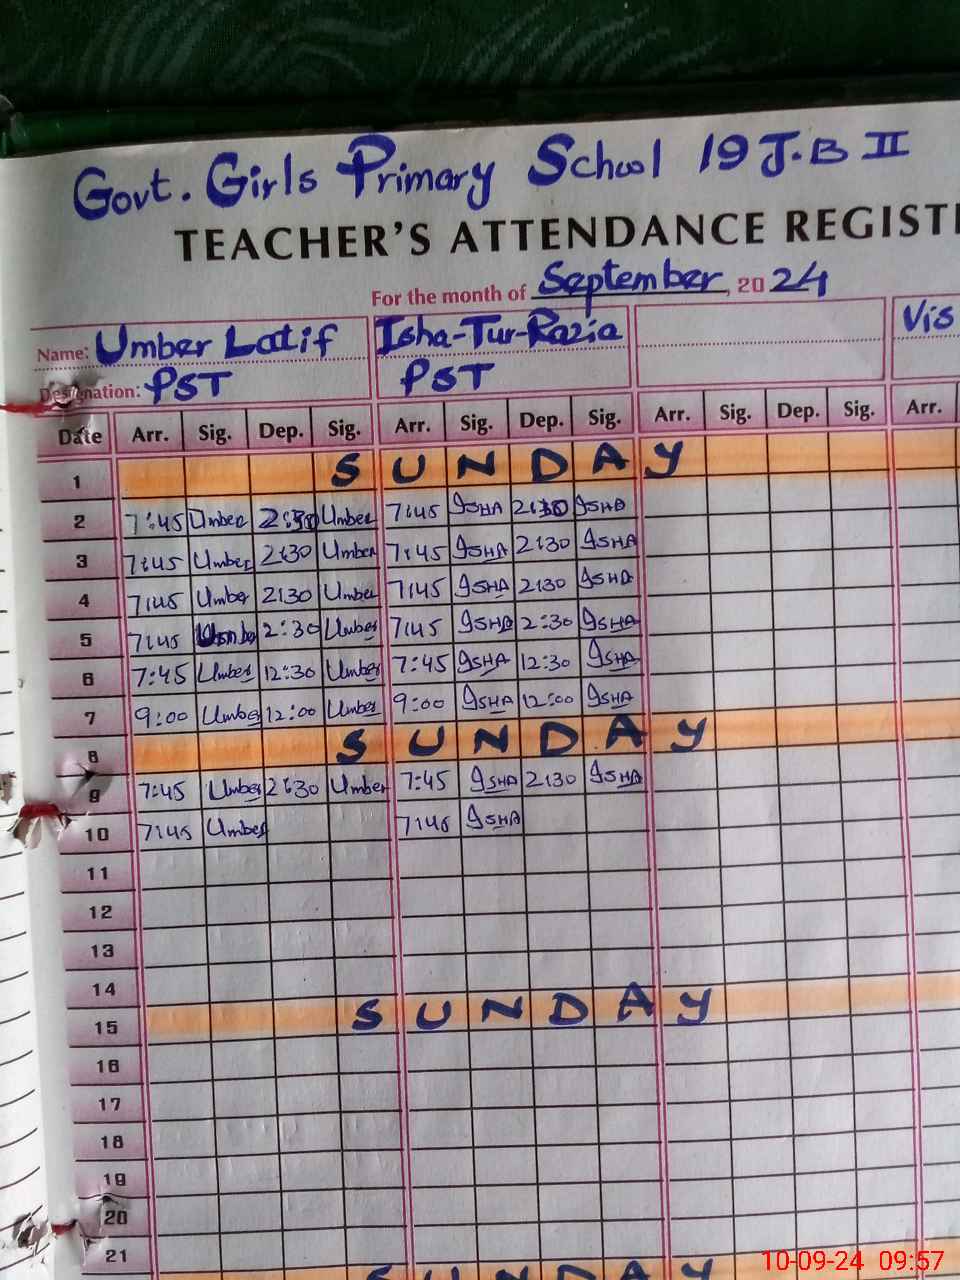 Govt. Girls Primary School 19 J.B II
TEACHER'S ATTENDANCE REGISTE
For the month of September, 2024
Name: Umber Latif Isha-Tur-Razia Vis
Designation: PST PST
Date Arr. Sig. Dep. Sig. Arr. Sig. Dep. Sig. Arr. Sig. Dep. Sig. Arr.
1 SUNDAY
2 7:45 Umber 2:30 Umber 7:45 ISHA 2:30 ISHA
3 7:45 Umber 2:30 Umber 7:45 ISHA 2:30 ISHA
4 7:45 Umber 2:30 Umber 7:45 ISHA 2:30 ISHA
5 7:45 Umber 2:30 Umber 7:45 ISHA 2:30 ISHA
6 7:45 Umber 12:30 Umber 7:45 ISHA 12:30 ISHA
7 9:00 Umber 12:00 Umber 9:00 ISHA 12:00 ISHA
8 SUNDAY
9 7:45 Umber 2:30 Umber 7:45 ISHA 2:30 ISHA
10 7:45 Umber 7:45 ISHA
11
12
13
14
15 SUNDAY
16
17
18
19
20
21
SUNDAY
10-09-24 09:57